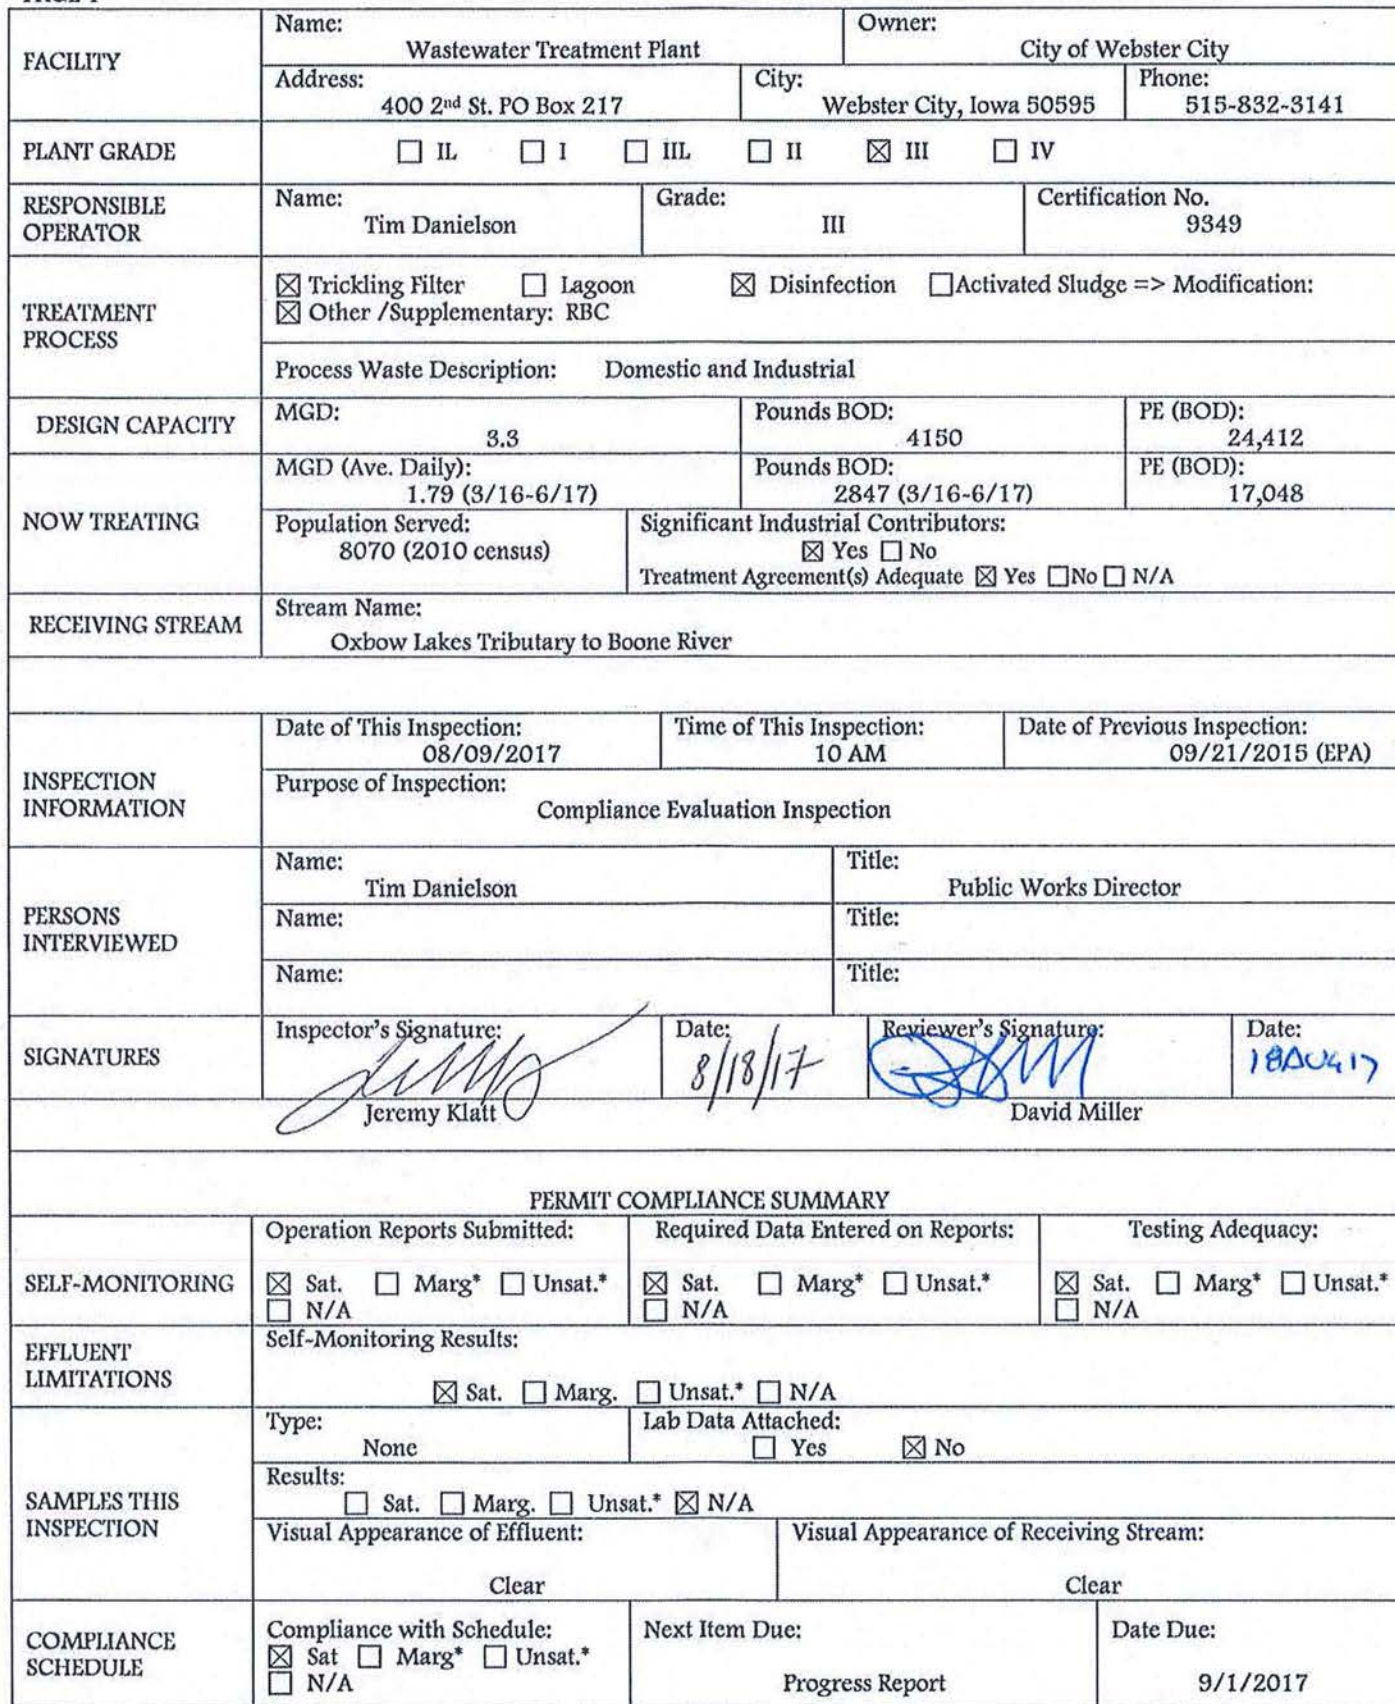 FACILITY
Name:
Wastewater Treatment Plant
Owner:
City of Webster City
Address:
400 2nd St. PO Box 217
City:
Webster City, Iowa 50595
Phone:
515-832-3141
PLANT GRADE
☐ IL ☐ I ☐ IIL ☐ II ☒ III ☐ IV
RESPONSIBLE
OPERATOR
Name:
Tim Danielson
Grade:
III
Certification No.
9349
TREATMENT
PROCESS
☒ Trickling Filter ☐ Lagoon ☒ Disinfection ☐Activated Sludge => Modification:
☒ Other /Supplementary: RBC
Process Waste Description: Domestic and Industrial
DESIGN CAPACITY
MGD:
3.3
Pounds BOD:
4150
PE (BOD):
24,412
NOW TREATING
MGD (Ave. Daily):
1.79 (3/16-6/17)
Pounds BOD:
2847 (3/16-6/17)
PE (BOD):
17,048
Population Served:
8070 (2010 census)
Significant Industrial Contributors:
☒ Yes ☐ No
Treatment Agreement(s) Adequate ☒ Yes ☐No ☐ N/A
RECEIVING STREAM
Stream Name:
Oxbow Lakes Tributary to Boone River
INSPECTION
INFORMATION
Date of This Inspection:
08/09/2017
Time of This Inspection:
10 AM
Date of Previous Inspection:
09/21/2015 (EPA)
Purpose of Inspection:
Compliance Evaluation Inspection
PERSONS
INTERVIEWED
Name:
Tim Danielson
Title:
Public Works Director
Name:
Title:
Name:
Title:
SIGNATURES
Inspector's Signature:
Jeremy Klatt
Date:
8/18/17
Reviewer's Signature:
David Miller
Date:
18AUG17
PERMIT COMPLIANCE SUMMARY
SELF-MONITORING
Operation Reports Submitted:
☒ Sat. ☐ Marg* ☐ Unsat.*
☐ N/A
Required Data Entered on Reports:
☒ Sat. ☐ Marg* ☐ Unsat.*
☐ N/A
Testing Adequacy:
☒ Sat. ☐ Marg* ☐ Unsat.*
☐ N/A
EFFLUENT
LIMITATIONS
Self-Monitoring Results:
☒ Sat. ☐ Marg. ☐ Unsat.* ☐ N/A
SAMPLES THIS
INSPECTION
Type:
None
Lab Data Attached:
☐ Yes ☒ No
Results:
☐ Sat. ☐ Marg. ☐ Unsat.* ☒ N/A
Visual Appearance of Effluent:
Clear
Visual Appearance of Receiving Stream:
Clear
COMPLIANCE
SCHEDULE
Compliance with Schedule:
☒ Sat ☐ Marg* ☐ Unsat.*
☐ N/A
Next Item Due:
Progress Report
Date Due:
9/1/2017